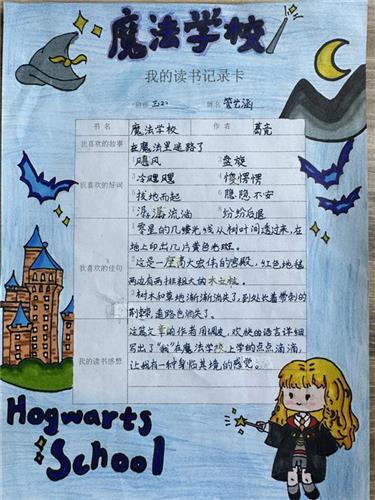 魔法学校
我的读书记录卡
班级 五(2) 姓名 管艺涵
书名 魔法学校 作者 葛竞
我喜欢的故事 在魔法里迷路了
我喜欢的好词
1飓风 2盘旋
3冷飕飕 4懵愣愣
5拔地而起 6隐隐不安
7潺潺流淌 8纷纷后退
我喜欢的佳句
1零星的几缕光线从树叶间透过来,在
地上印出几片黄色光斑。
2这是一座高大宏伟的宫殿,红色地毯
两边有两排粗大的水立柱。
3树木和草地渐渐消失了,到处长着带刺的
荆棘,道路也消失了。
我的读书感想
这篇文章的作者用调皮、欢快的语言详细
写出了“我”在魔法学校上学的点点滴滴,
让我有一种身临其境的感觉。
Hogwarts
School